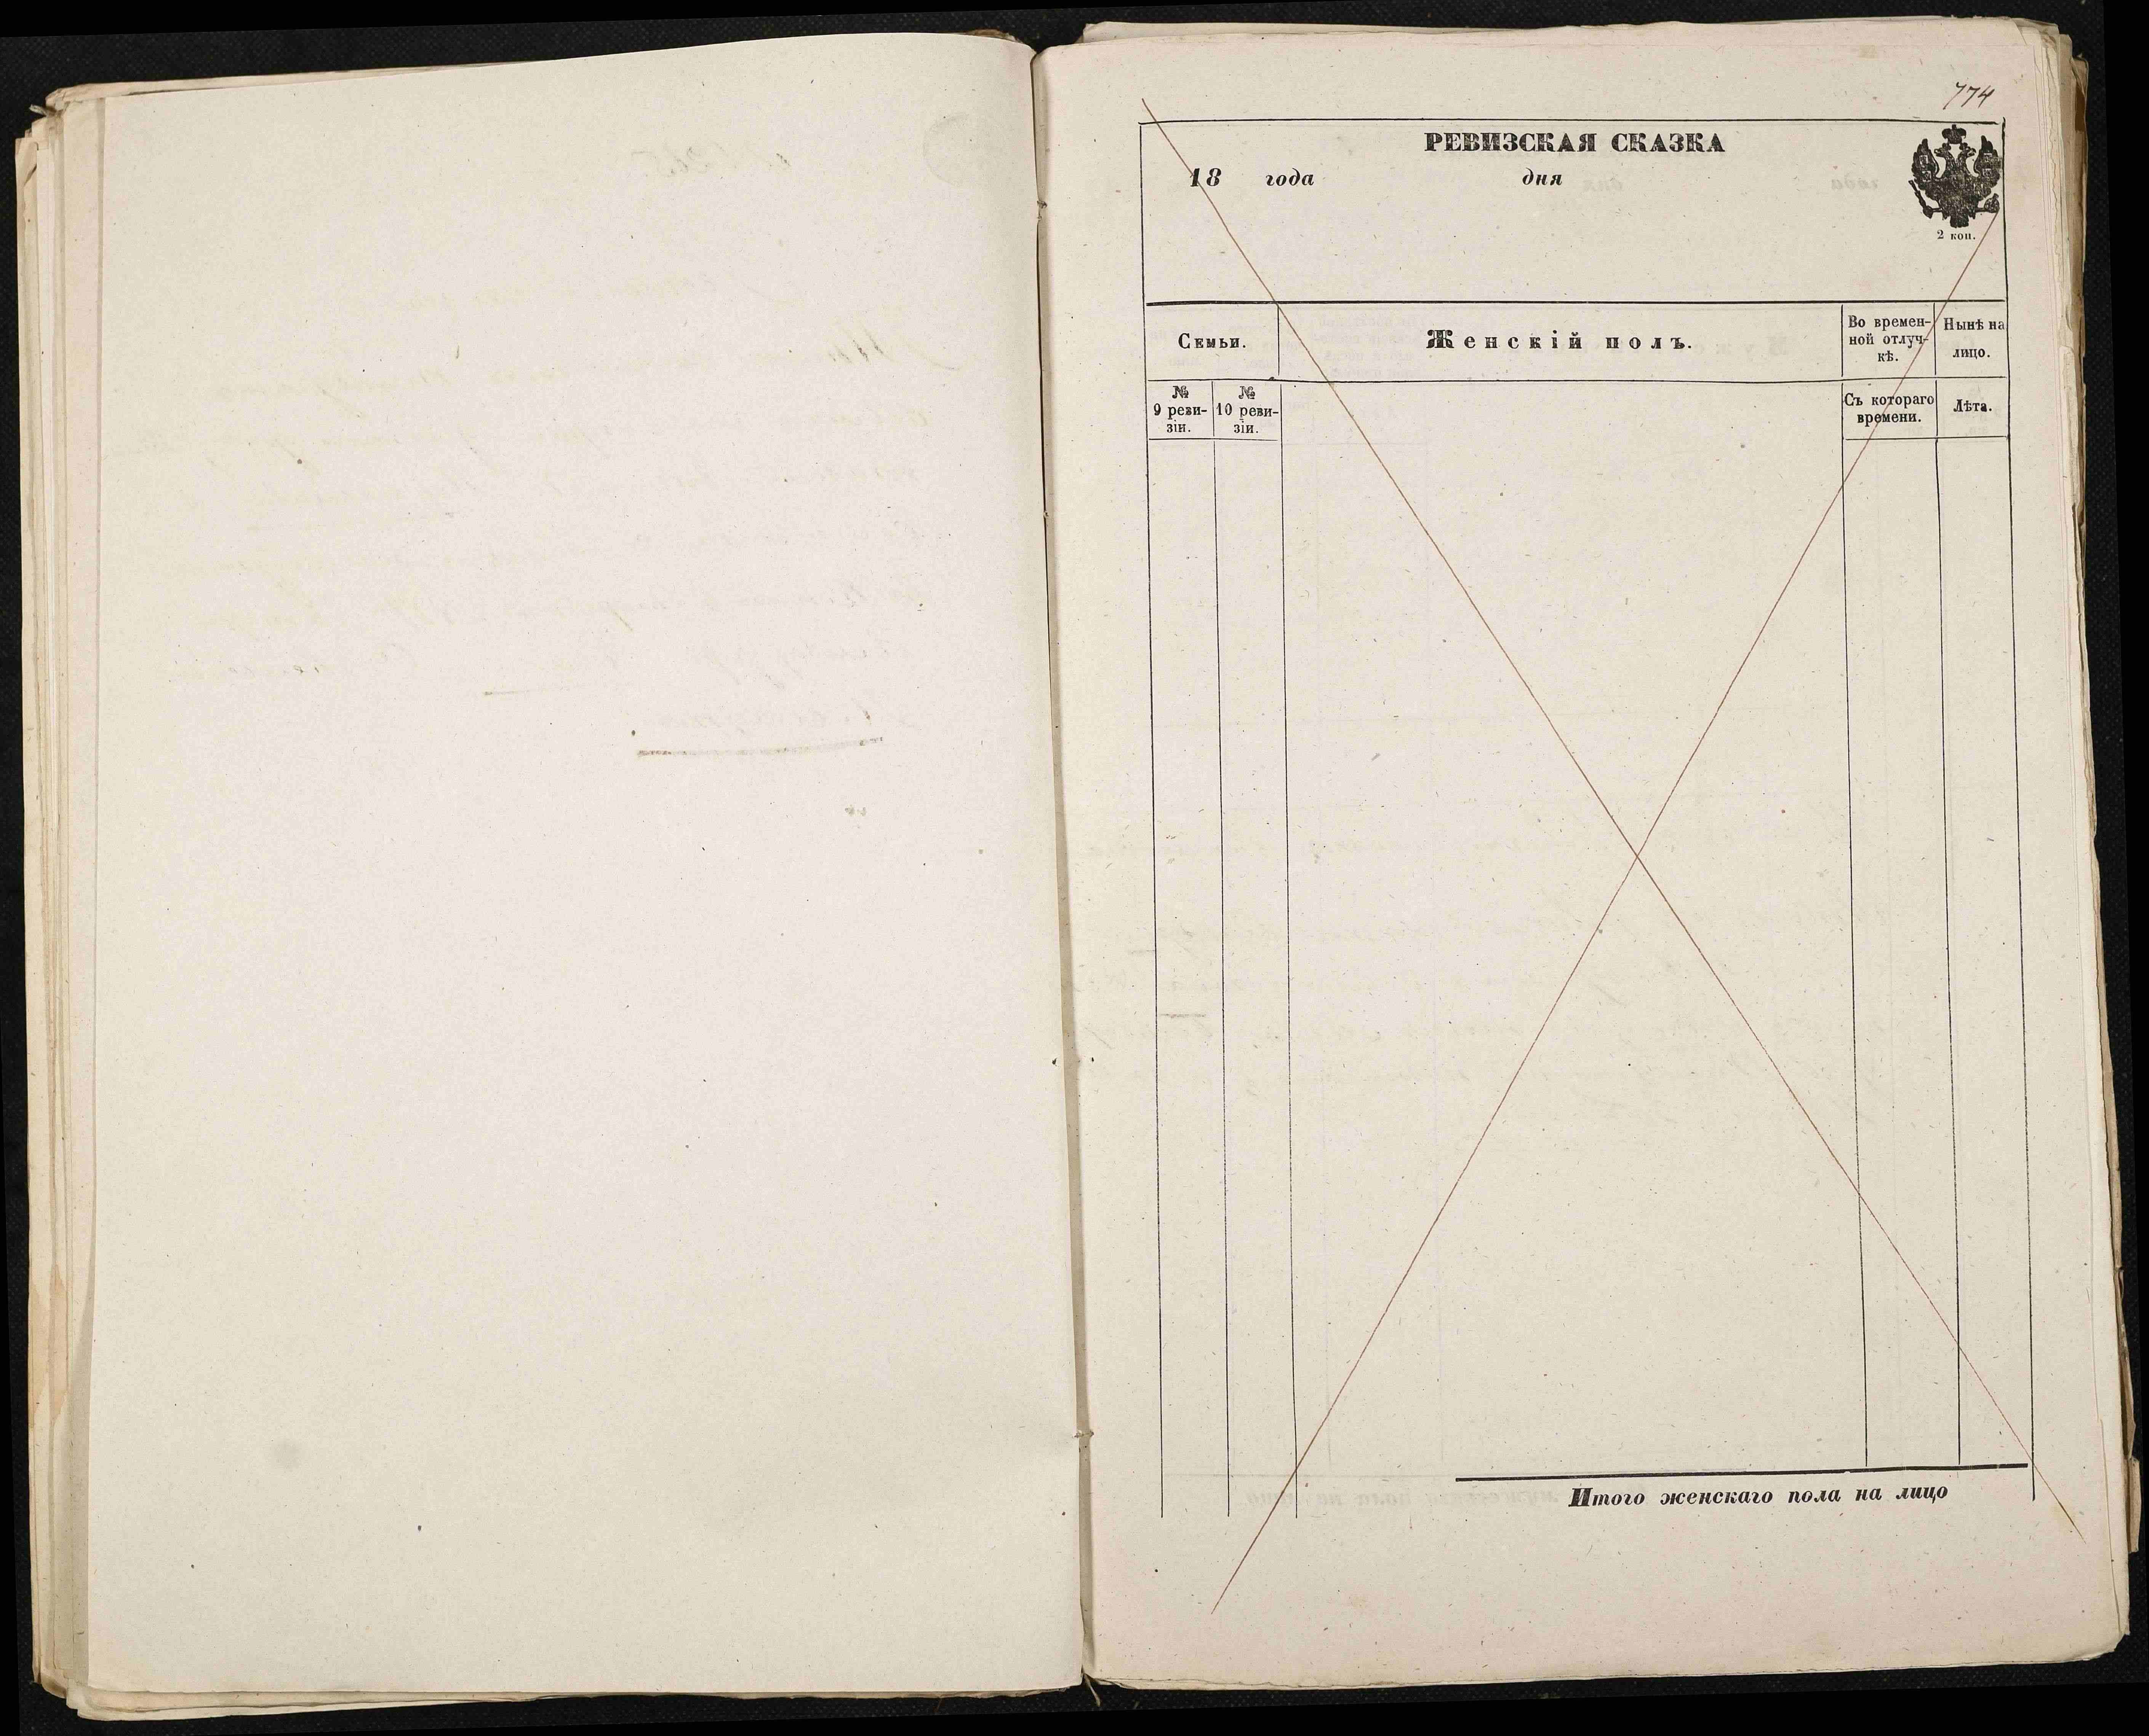 774
РЕВИЗСКАЯ СКАЗКА
18 года дня
2 коп.
Семьи.
Женскій полъ.
Во времен-
ной отлуч-
кѣ.
Нынѣ на
лицо.
№
9 реви-
зіи.
№
10 реви-
зіи.
Съ котораго
времени.
Лѣта.
Итого женскаго пола на лицо